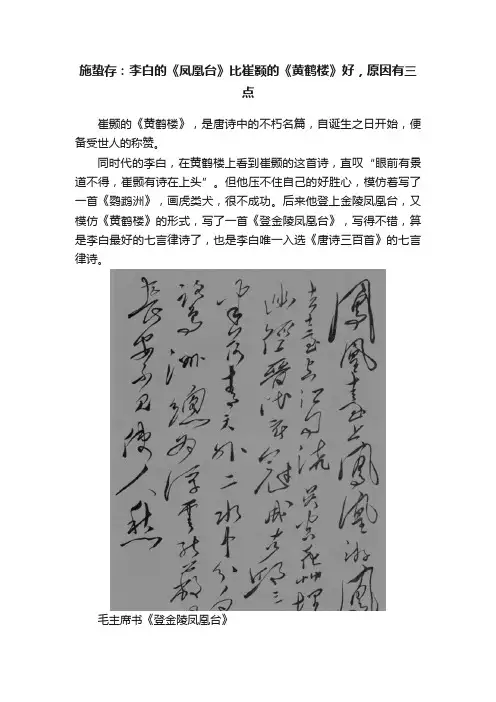 施蛰存：李白的《凤凰台》比崔颢的《黄鹤楼》好，原因有三
点
崔颢的《黄鹤楼》，是唐诗中的不朽名篇，自诞生之日开始，便
备受世人的称赞。
同时代的李白，在黄鹤楼上看到崔颢的这首诗，直叹“眼前有景
道不得，崔颢有诗在上头”。但他压不住自己的好胜心，模仿着写了
一首《鹦鹉洲》，画虎类犬，很不成功。后来他登上金陵凤凰台，又
模仿《黄鹤楼》的形式，写了一首《登金陵凤凰台》，写得不错，算
是李白最好的七言律诗了，也是李白唯一入选《唐诗三百首》的七言
律诗。
鳳凰臺上鳳凰游鳳
去臺空江自流吴宫花草埋
幽徑晉代衣冠成古邱三
山半落青天外二水中分白
鷺洲總为浮雲能蔽
長安不見使人愁
毛主席书《登金陵凤凰台》